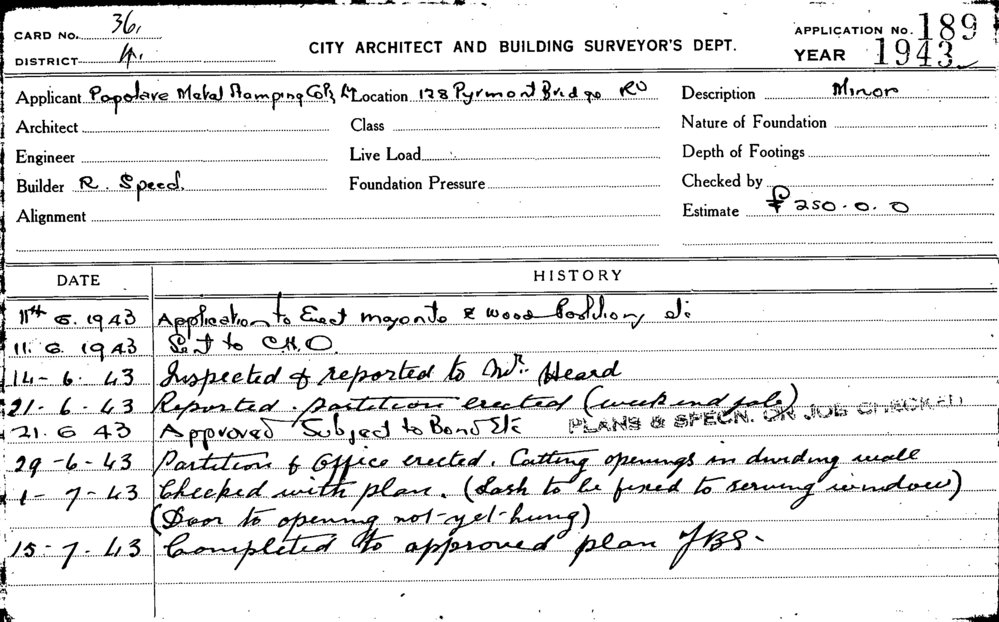 CARD No. 36.
DISTRICT 4.
CITY ARCHITECT AND BUILDING SURVEYOR'S DEPT.
APPLICATION No. 189
YEAR 1943
Applicant Papolare Metal Stamping Co Pty Lt Location 128 Pyrmont Bridge RD Description Minor
Architect Class Nature of Foundation
Engineer Live Load Depth of Footings
Builder R. Speed. Foundation Pressure Checked by
Alignment Estimate £ 250.0.0
DATE HISTORY
11th 6. 1943 Application to Erect & Wood
11. 6. 1943 Sent to C.H.O.
14-6-43 Inspected & reported to Mr. Heard
21-6-43 Reported. partition erected (week end job)
21.6 43 Approved Subject to Bond Etc PLANS & SPECN. ON JOB CHECKED
29-6-43 Partition & Office erected. Cutting openings in dividing wall
1-7-43 Checked with plan. (Sash to be fixed to serving window)
(Door to opening not-yet-hung)
15-7-43 Completed to approved plan